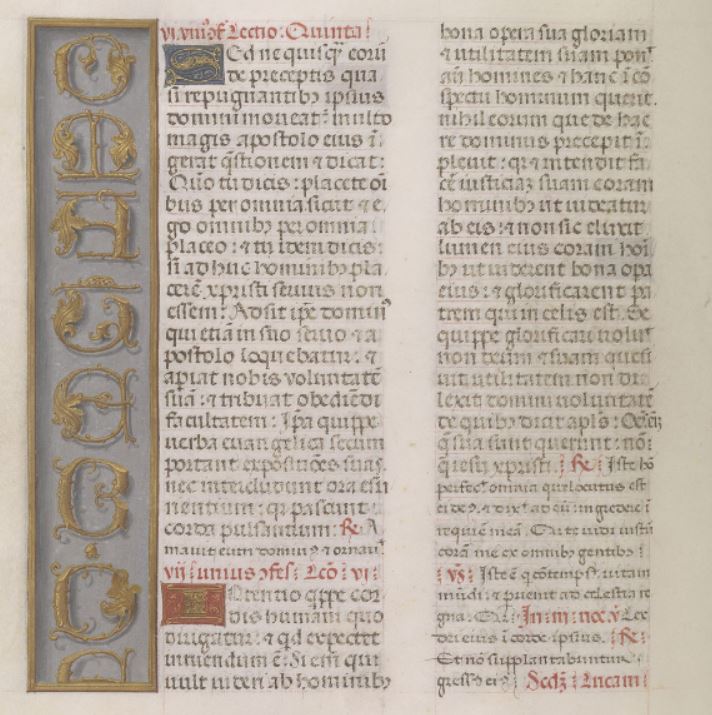 Lectio : Quinta
Sed ne quisq̃ eorũ
de preceptis qua
si repugnantibꝰ ipsius
dominũ moueat : multo
magis apostolo eius ĩ
gerat q̃stionem ⁊ dicat :
Quõ tu dicis : placete oĩ
bus per omnia sicut ⁊ e
go omnibꝫ per omnia
placeo : ⁊ tu idem dicis :
si adhuc hominibꝫ pla
cerẽ xpristi seruus non
essem : Adsit ip̃e dominꝰ
qui etiã in suo seruo ⁊ a
postolo loquebatur : ⁊
apiat nobis voluntatẽ
suã : ⁊ tribuat obediẽdi
facultatem : Ip̃a quippe
uerba euangelica secum
portant expositiões suas
nec intercludunt ora esu
rientium : qꝛ pascunt
corda pulsantium : ℟ A
mauit eum dominꝰ ⁊ ornauit
vij : unius ↄfes : Lcõ : vi :
Intentio q̃ppe cor
dis humani quo
dirigatur : ⁊ qd expectet
intuendum ẽ : Si eni qui
uult uideri ab hominibꝫ
bona opera sua gloriam
⁊ utilitatem suam pon
ãn homines ⁊ hanc ĩ cõ
spectu hominum querit :
nihil eorum que de hac
re dominus precepit ĩ
pleuit : qꝛ ⁊ intendit fa
cẽ iusticiaz suam coram
hominibꝫ ut uideatur
ab eis : ⁊ non sic eluxit
lumen eius coram hoĩ
bꝫ ut uiderent bona opa
eius : ⁊ glorificarent pa
trem qui in celis est. Se
quippe glorificari voluit
non deum ⁊ suam quesi
uit utilitatem non di
lexit domini voluntatẽ
de quibꝫ dicit apls : Oẽs eñ
q̃ sua sunt querunt : nõ :
q̃ iesu xpristi. : ℟ : Iste hõ
perfecit omnia que locutus est
ei deꝰ. ⁊ dixit ad eũ : ingredere ĩ
requiẽ meã . Qꝛ te uidi iustũ
corã me ex omnibꝫ gentibꝫ :
: ℣ : Iste ẽ q cõtempsit uitam
mũdi : ⁊ puenit ad celestia re
gna : Qꝛ : In : iii : noc : ℣ Lex
dei eius ĩ corde ipsius. : ℟ :
Et nõ supplantabuntur
gressꝰ eiꝰ : Secdꝫ : Lucam :